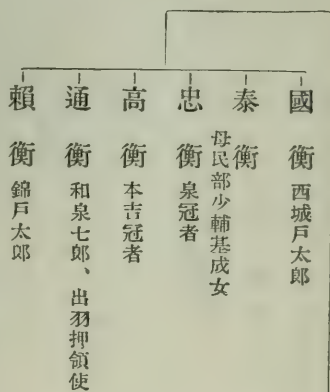 國衡 西城戸太郎
泰衡 母民部少輔基成女
忠衡 泉冠者
高衡 本吉冠者
通衡 和泉七郎、出羽押領使
頼衡 錦戸太郎